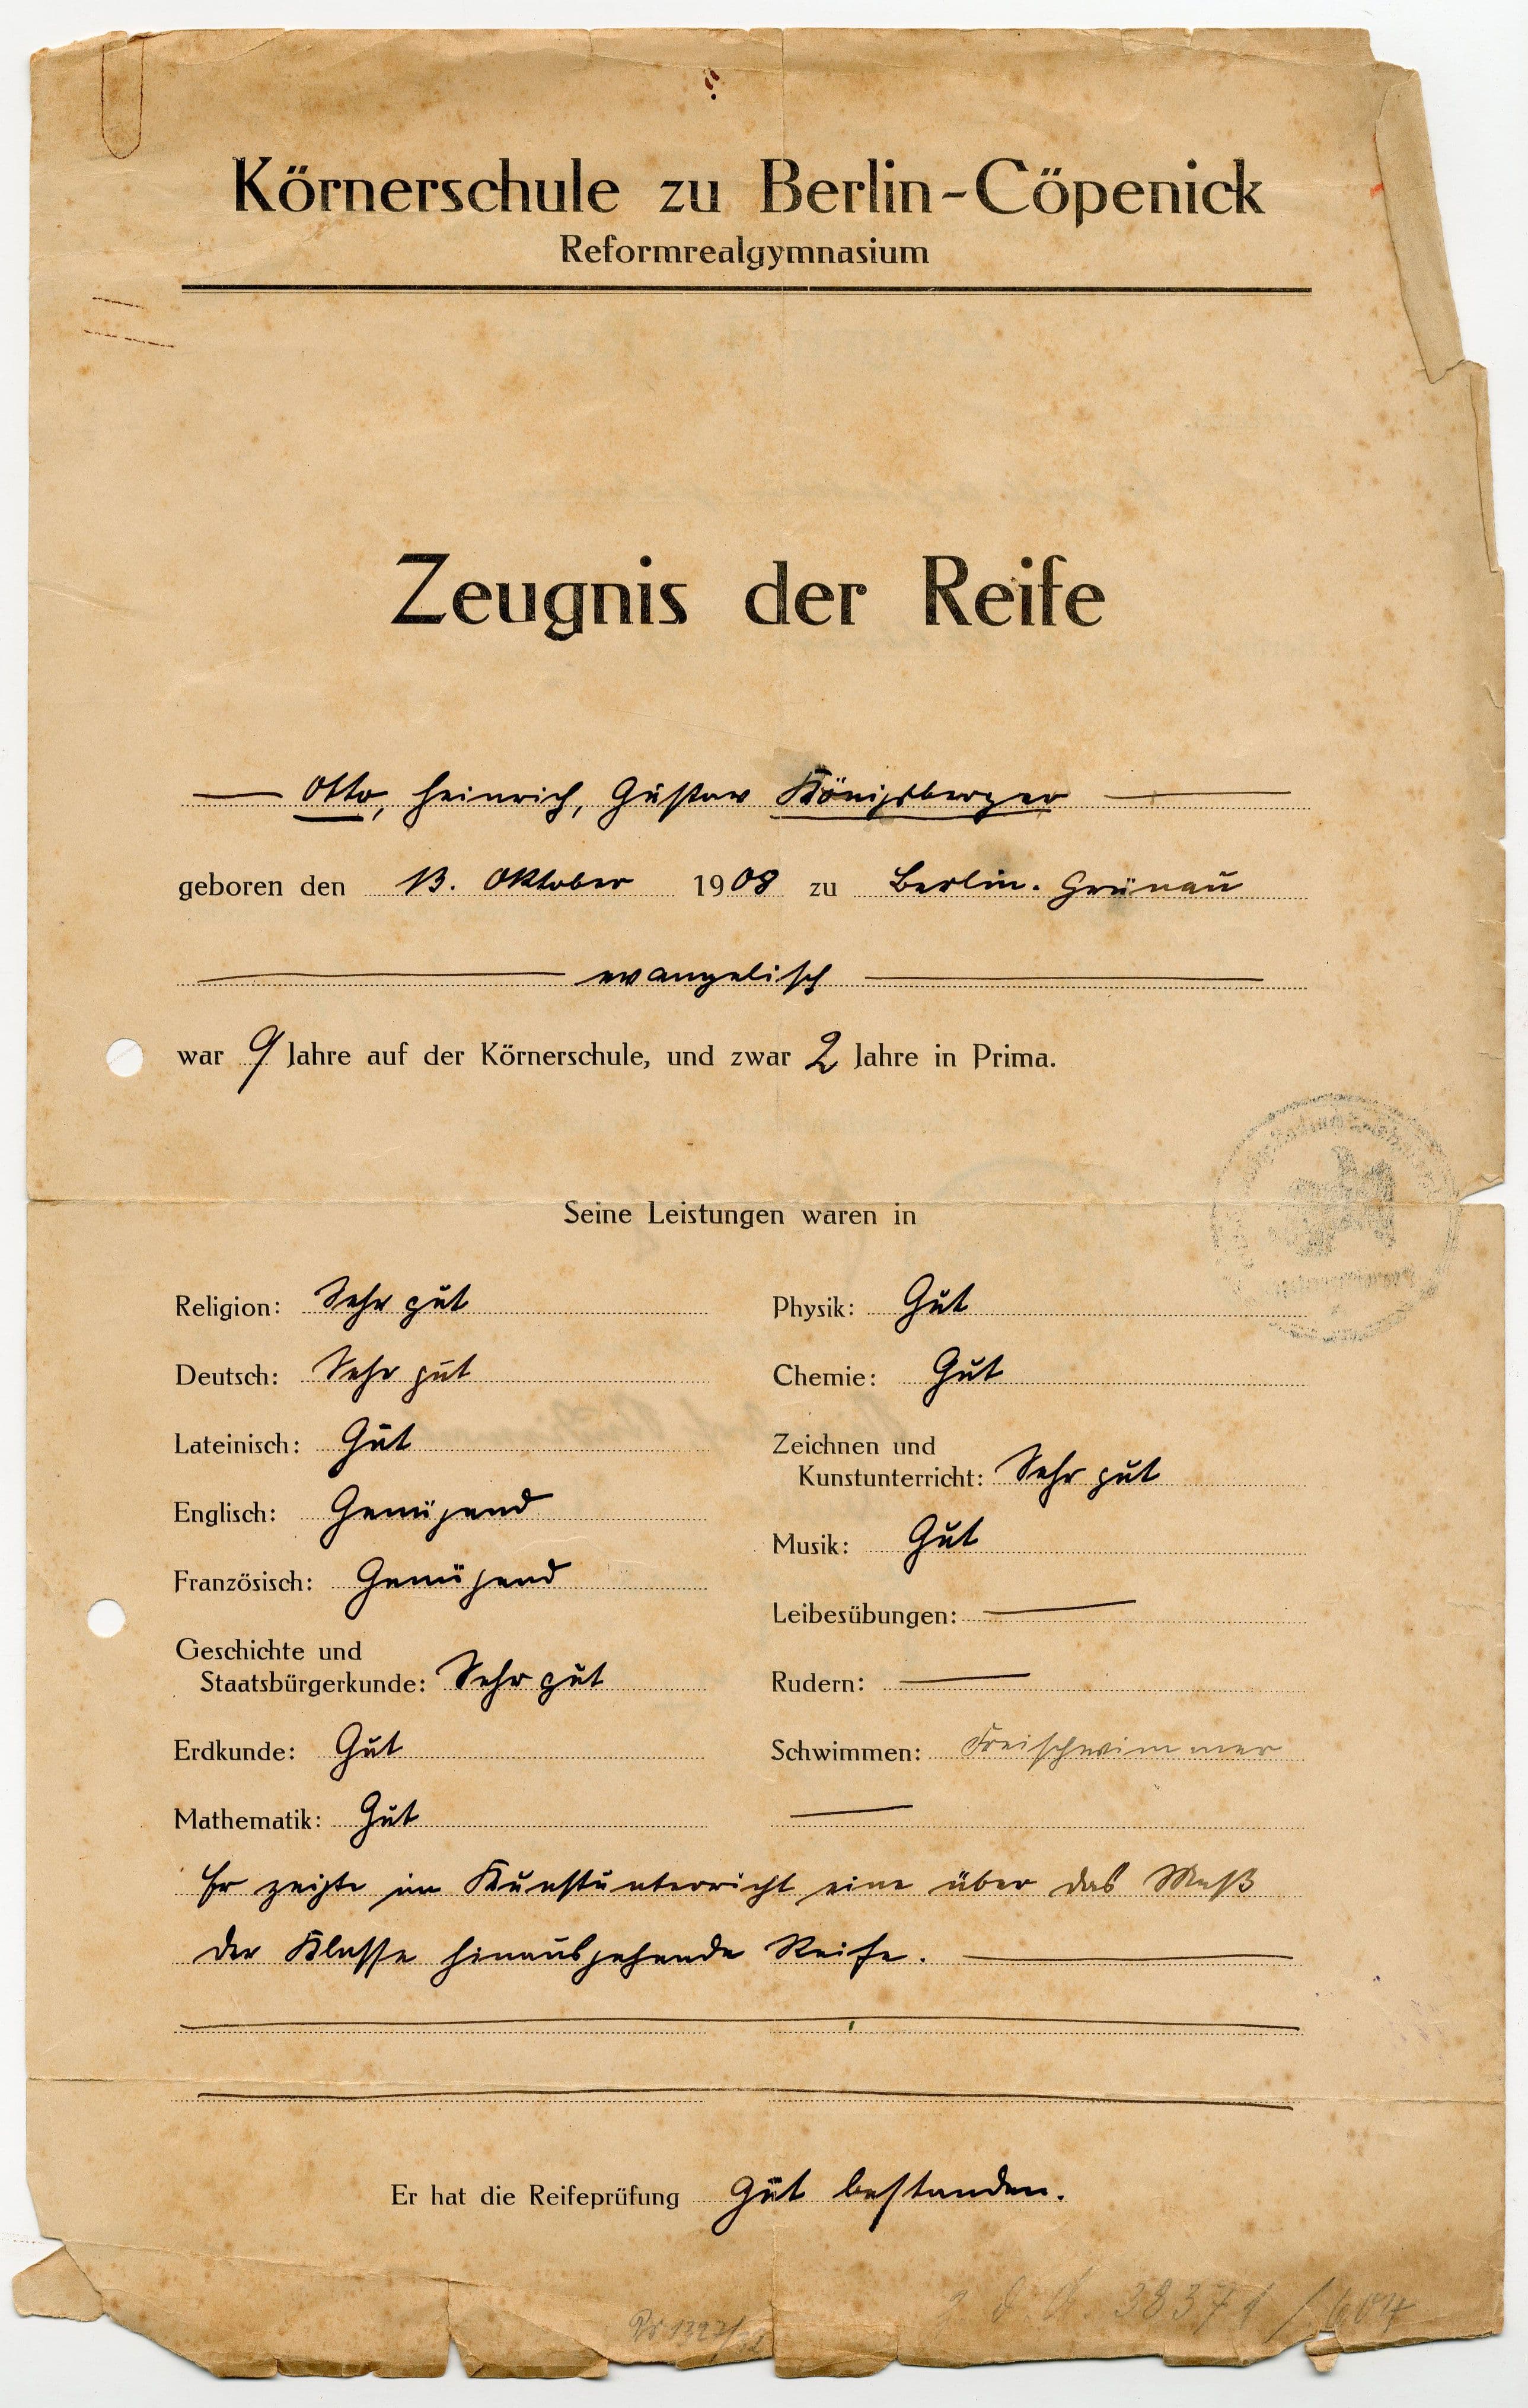 Körnerschule zu Berlin-Cöpenick
Reformrealgymnasium
Zeugnis der Reife
Otto, Heinrich, Gustav Königsberger
geboren den 13. Oktober 1908 zu Berlin-Grünau
evangelisch
war 9 Jahre auf der Körnerschule, und zwar 2 Jahre in Prima.
Seine Leistungen waren in
Religion: Sehr gut
Deutsch: Sehr gut
Lateinisch: Gut
Englisch: Genügend
Französisch: Genügend
Geschichte und
Staatsbürgerkunde: Sehr gut
Erdkunde: Gut
Mathematik: Gut
Physik: Gut
Chemie: Gut
Zeichnen und
Kunstunterricht: Sehr gut
Musik: Gut
Leibesübungen: —
Rudern: —
Schwimmen: Freischwimmer
Er zeigte im Kunstunterricht eine über das Maß
der Klasse hinausgehende Reife.
Er hat die Reifeprüfung Gut bestanden.